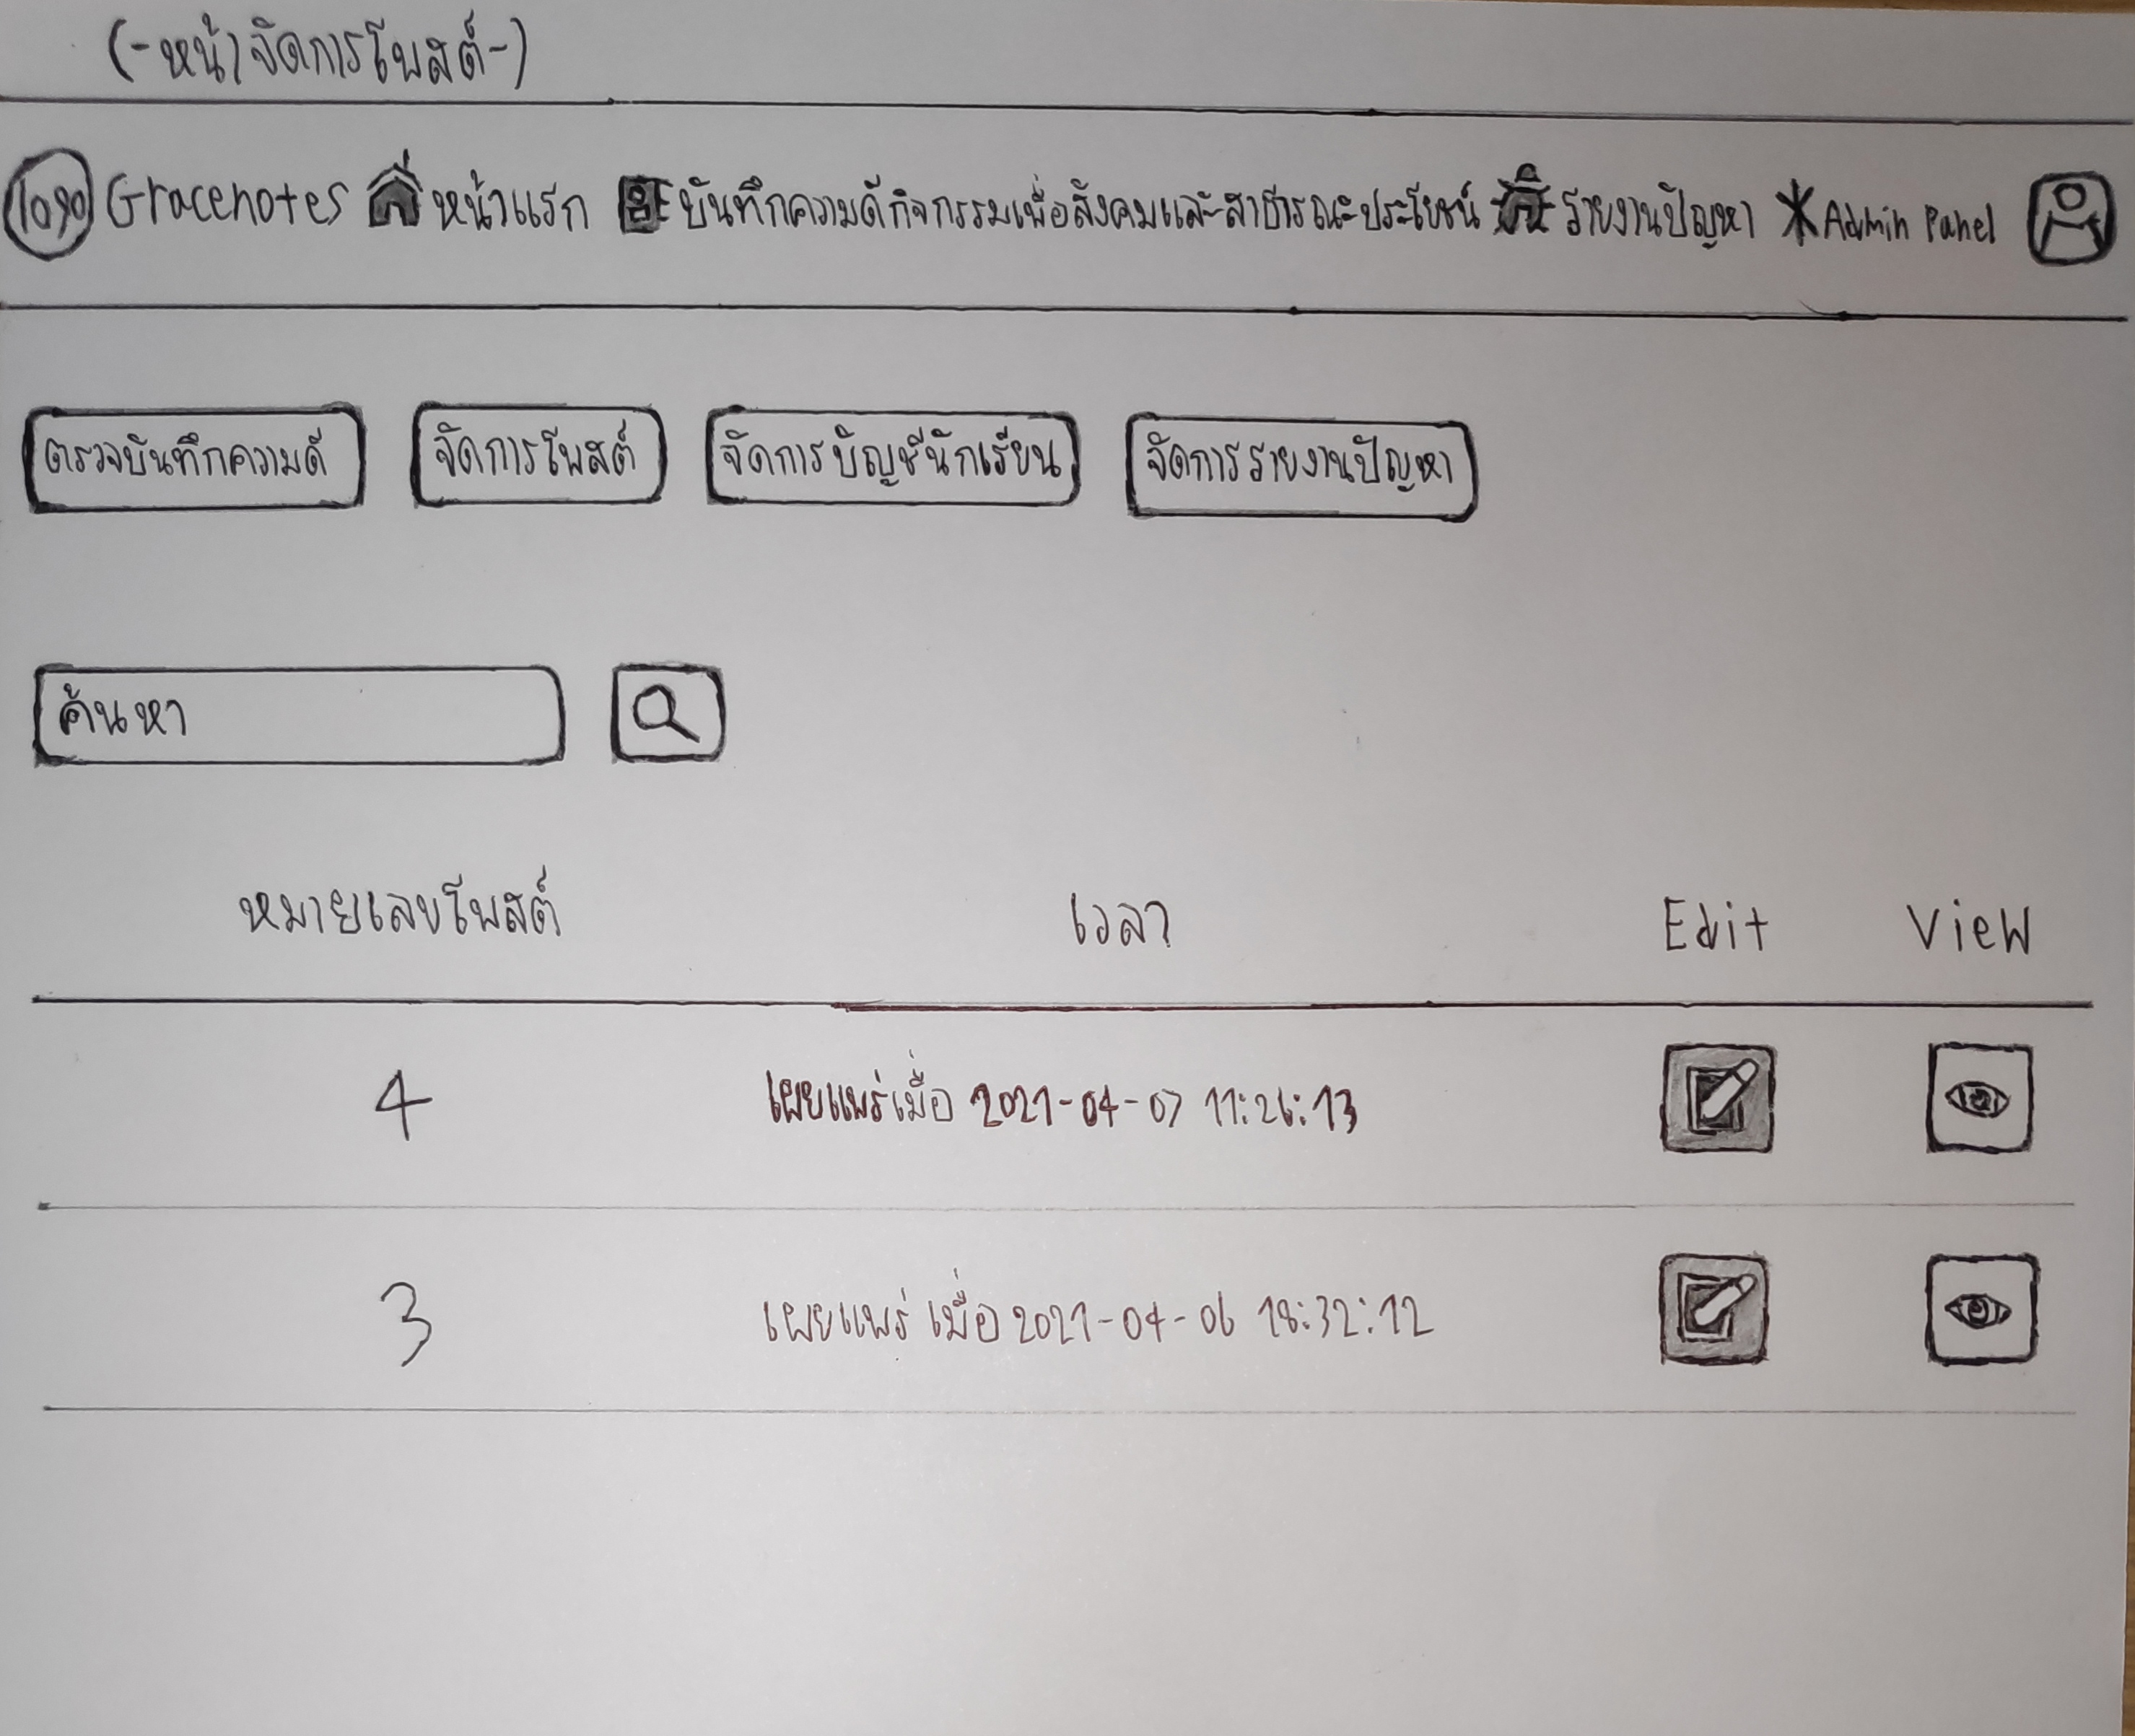 (-หน้าจัดการโพสต์-)
logo Gracenotes หน้าแรก บันทึกความดีกิจกรรมเพื่อสังคมและสาธารณะประโยชน์ รายงานปัญหา Admin Panel
ตรวจบันทึกความดี จัดการโพสต์ จัดการบัญชีนักเรียน จัดการรายงานปัญหา
ค้นหา
หมายเลขโพสต์ เวลา Edit View
4 เผยแพร่เมื่อ 2021-04-07 11:26:13
3 เผยแพร่เมื่อ 2021-04-06 18:32:12